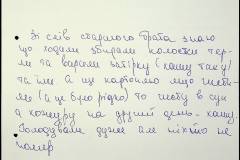 • Зі слів старшого брата знаю
що ходили збирали колоски тер-
ли та варили затірку (кашу таку)
та їли а ще картоплю що мать-
(а це було рідко) то в суп
а кожуру на другий день - кашу.
Голодували дуже але ніхто не
помер